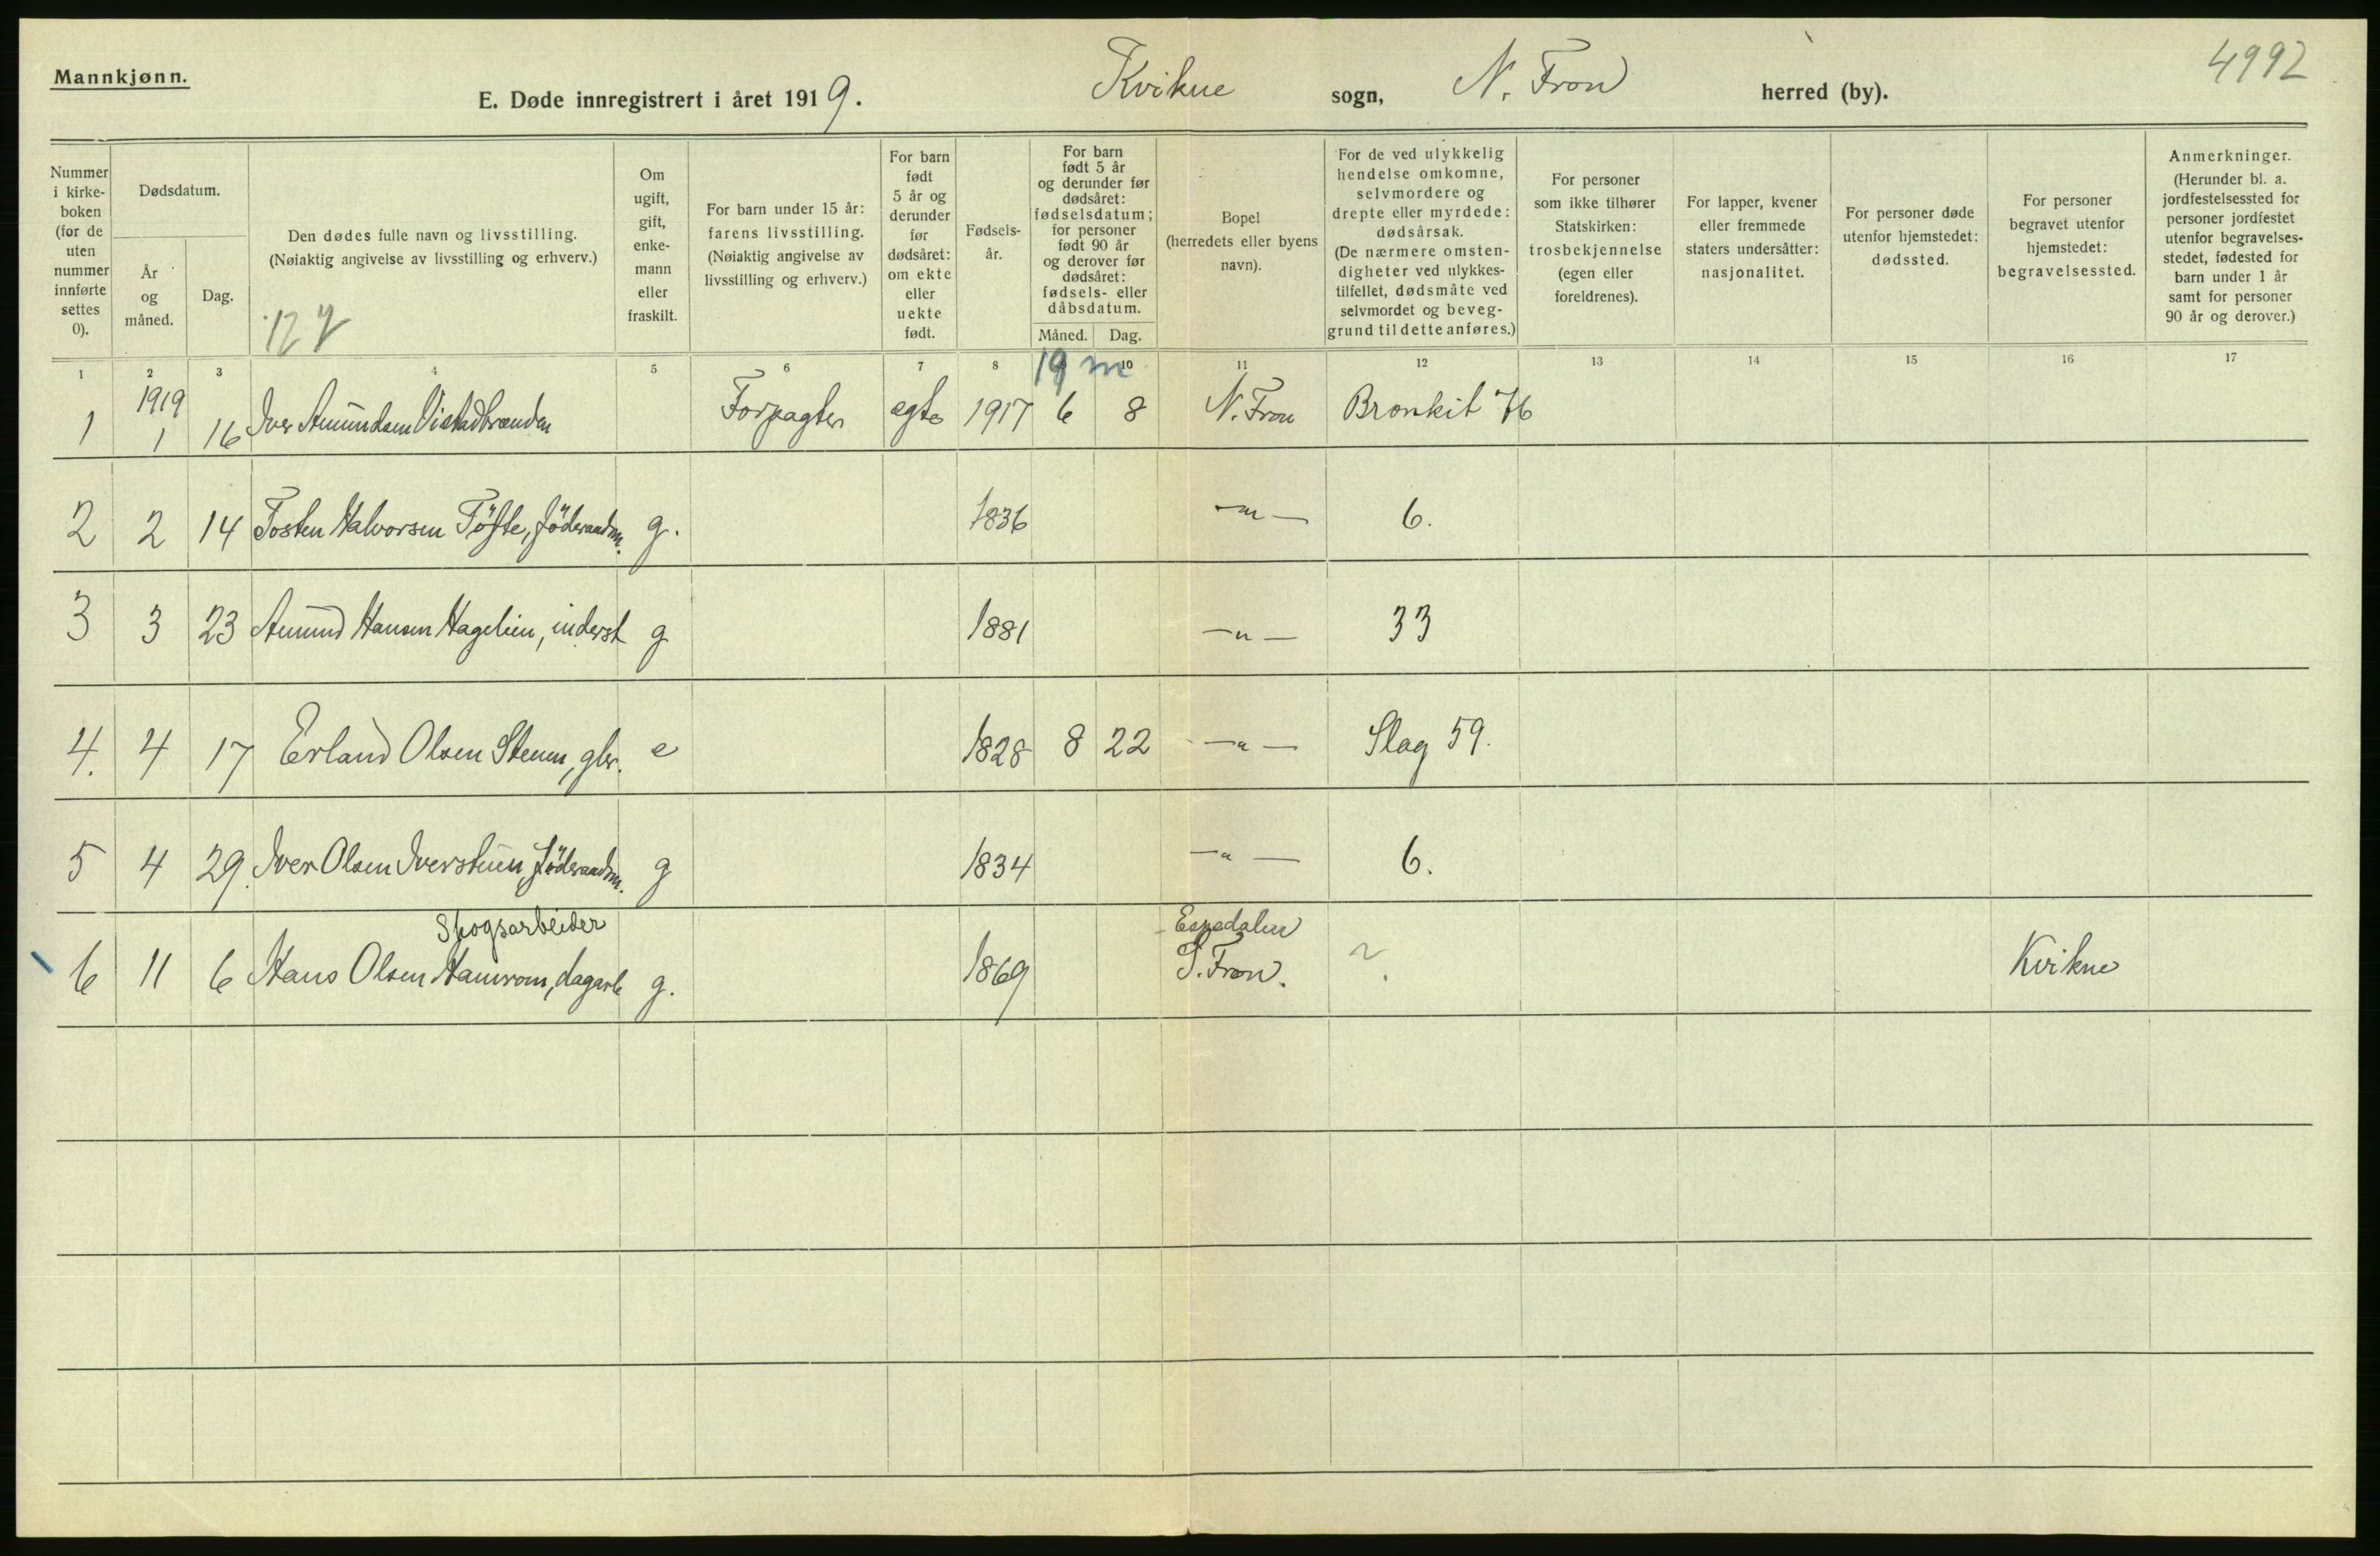 Mannkjønn.
E. Døde innregistrert i året 1919. Kvikne sogn, N. Fron herred (by).
4992
Nummer i kirkeboken (for de uten nummer innførte settes 0).
Dødsdatum.
År og måned.
Dag.
Den dødes fulle navn og livsstilling.
(Nøiaktig angivelse av livsstilling og erhverv.)
Om ugift, gift, enkemann eller fraskilt.
For barn under 15 år: farens livsstilling.
(Nøiaktig angivelse av livsstilling og erhverv.)
For barn født 5 år og derunder før dødsåret: om ekte eller uekte født.
Fødselsår.
For barn født 5 år og derunder før dødsåret: fødselsdatum; for personer født 90 år og derover før dødsåret: fødsels- eller dåbsdatum.
Måned. Dag.
Bopel (herredets eller byens navn).
For de ved ulykkelig hendelse omkomne, selvmordere og drepte eller myrdede: dødsårsak.
(De nærmere omstendigheter ved ulykkestilfellet, dødsmåte ved selvmordet og beveggrund til dette anføres.)
For personer som ikke tilhører Statskirken: trosbekjennelse (egen eller foreldrenes).
For lapper, kvener eller fremmede staters undersåtter: nasjonalitet.
For personer døde utenfor hjemstedet: dødssted.
For personer begravet utenfor hjemstedet: begravelsessted.
Anmerkninger.
(Herunder bl. a. jordfestelsessted for personer jordfestet utenfor begravelsesstedet, fødested for barn under 1 år samt for personer 90 år og derover.)
1 2 3 4 5 6 7 8 10 11 12 13 14 15 16 17
19 m
1919
1 1 16 Iver Amundsen Vistadbrænden Forpagter ægte 1917 6 8 N. Fron Bronkit 76
2 2 14 Tosten Halvorsen Töfte, föderaadm. g. 1836 —"— 6.
3 3 23 Amund Hansen Hagelien, inderst g 1881 —"— 33
4. 4 17 Erland Olsen Steum, gbr. e 1828 8 22 —"— Slag 59.
5 4 29. Iver Olsen Iverstuen, föderaadm. g 1834 —"— 6.
Skogsarbeider Espedalen
6 11 6 Hans Olsen Hamrom, dagarb g. 1869 S. Fron. ? Kvikne